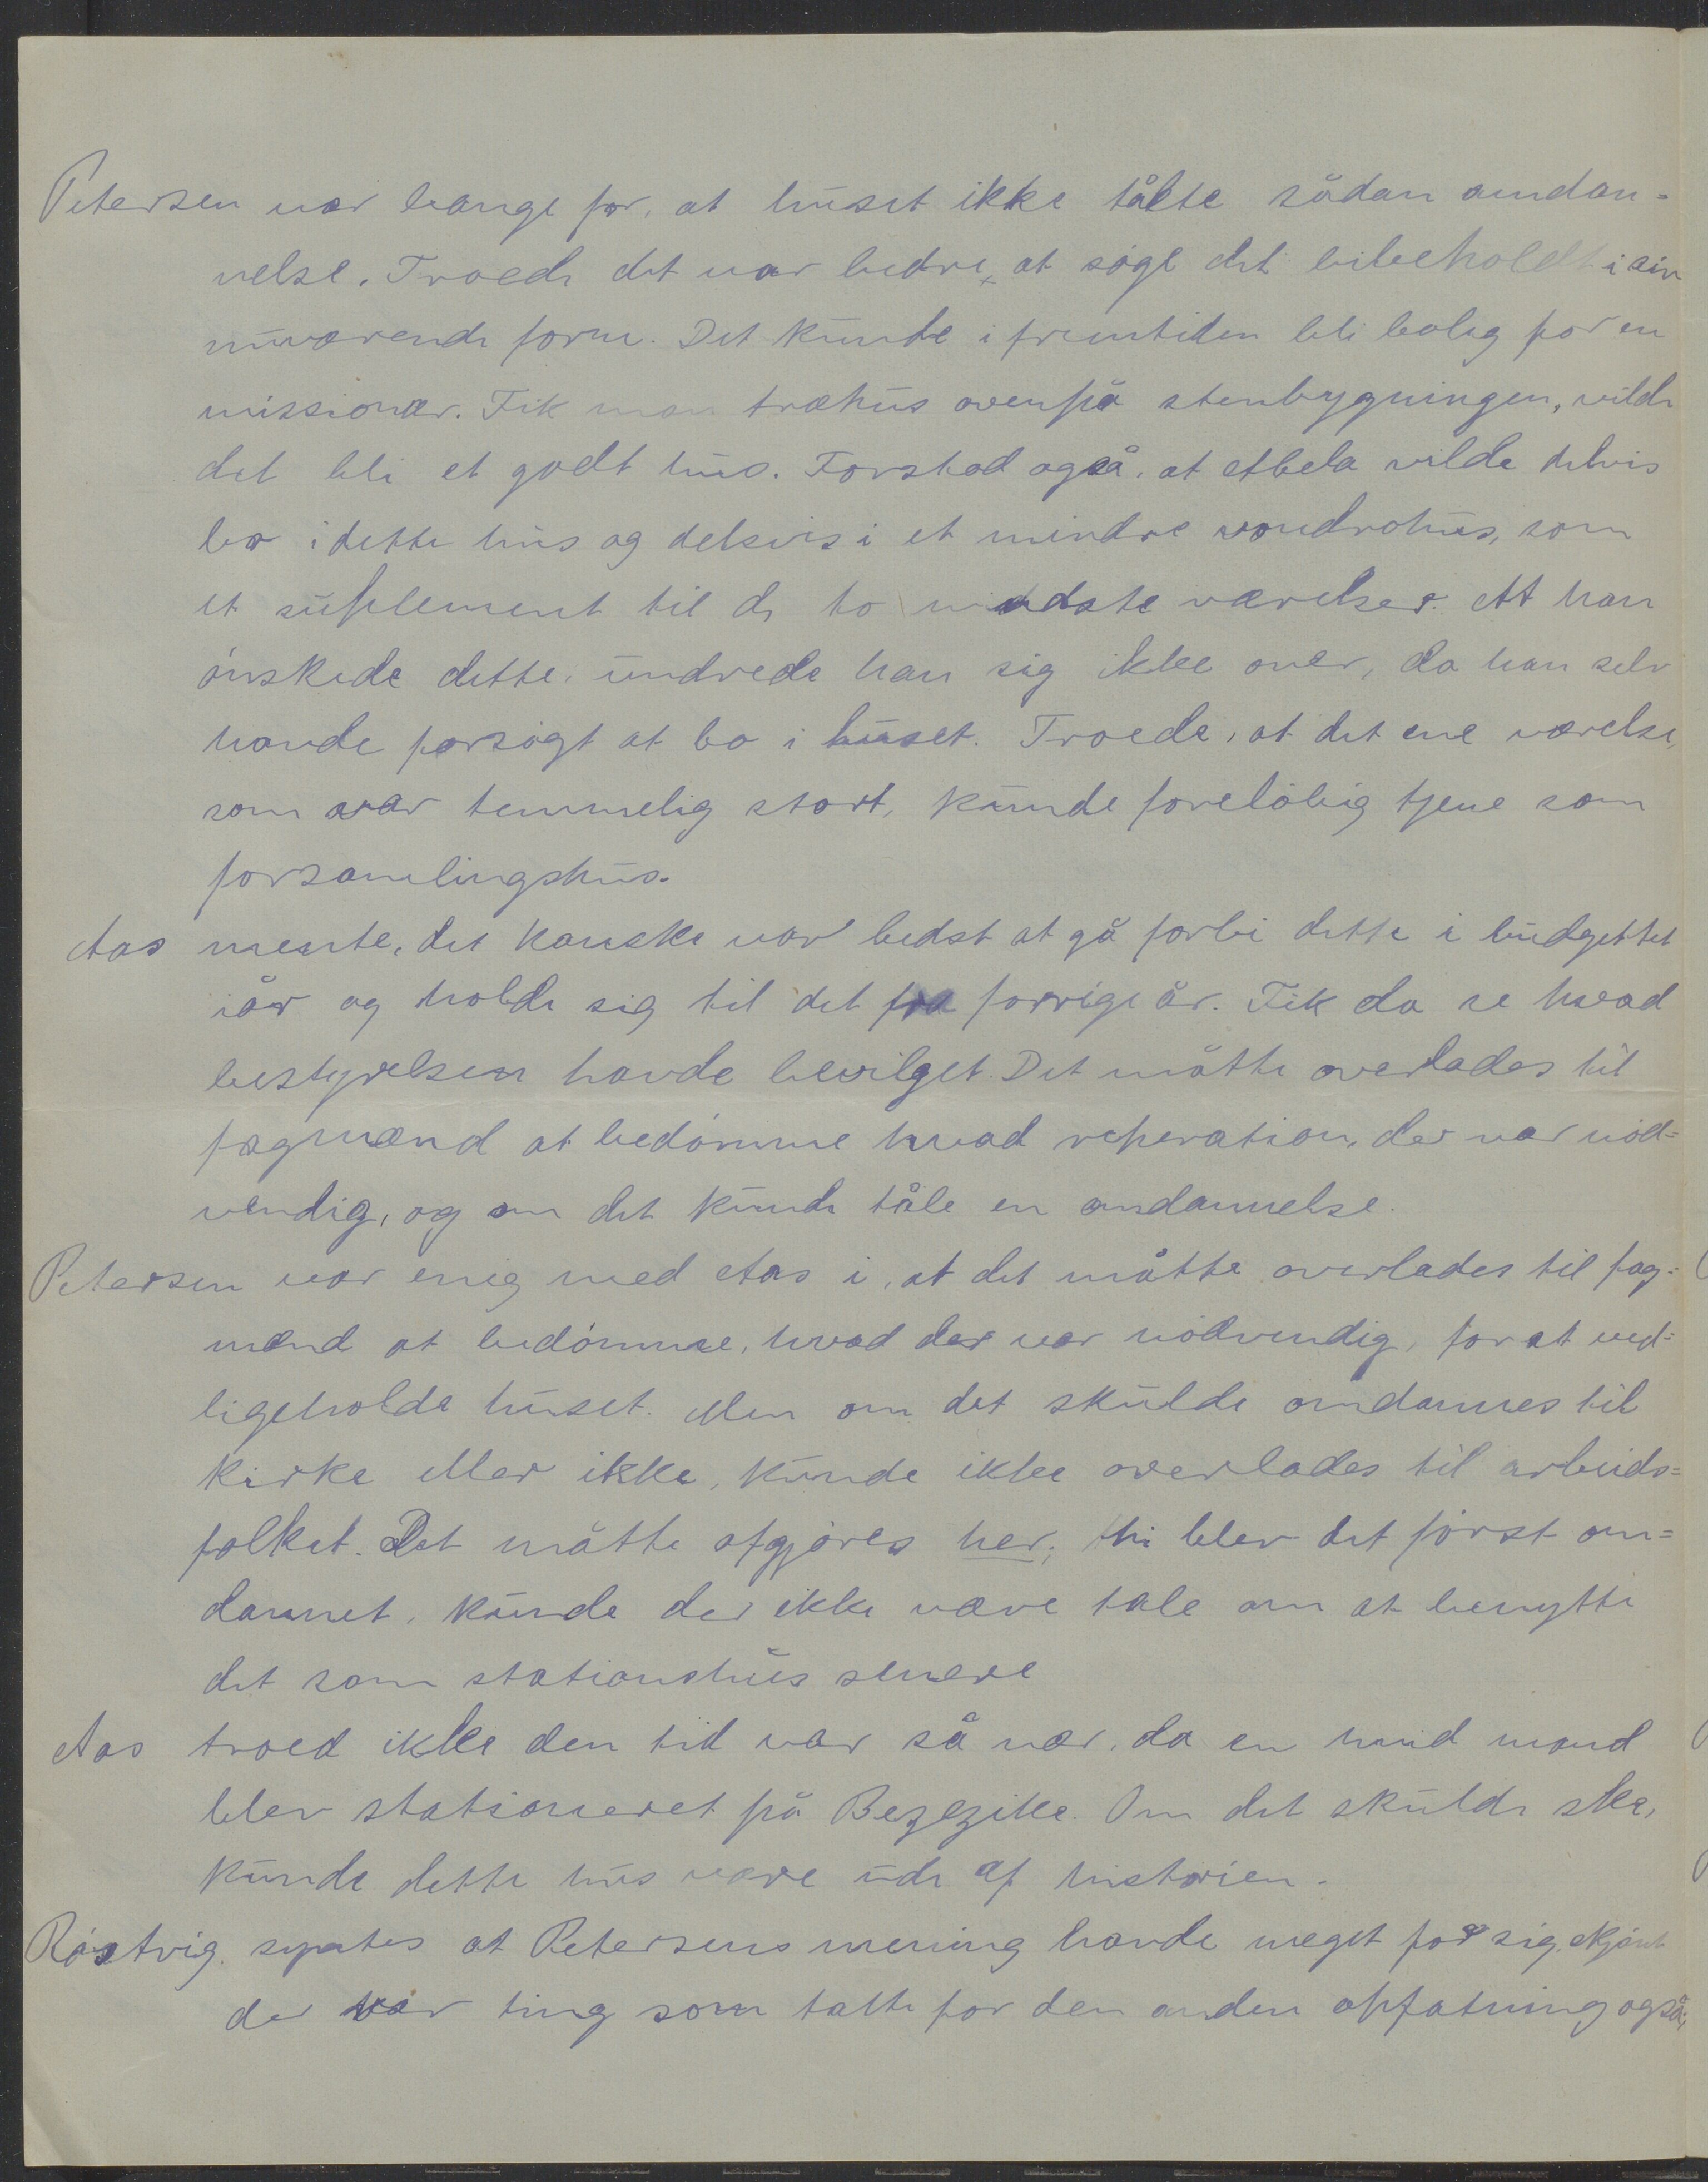 Petersen var bange for, at huset ikke tålte sådan omdan-
nelse. Troede det var bedre, at søge det bibeholdt i sin
nuværende form. Det kunde i fremtiden bli bolig for en
missionær. Fik man træhus ovenpå stenbygningen, vilde
det bli et godt hus. Forstod også, at Abela vilde delvis
bo i dette hus og delsvis i et mindre vondrohus, som
et suplement til de to mindste værelser. At han
ønskede dette, undrede han sig ikke over, da han selv
havde forsøgt at bo i huset. Troede, at det ene værelse,
som var temmelig stort, kunde foreløbig tjene som
forsamlingshus.
Aas mente, det kanske var bedst at gå forbi dette i budgettet
iår og holde sig til det fra forrige år. Fik da se hvad
bestyrelsen havde bevilget. Det måtte overlades til
fagmænd at bedømme hvad reperation, der var nød-
vendig, og om det kunde tåle en omdannelse.
Petersen var enig med Aas i, at det måtte overlades til fag-
mænd at bedømme, hvad der var nødvendig, for at ved-
ligeholde huset. Men om det skulde omdannes til
kirke eller ikke, kunde ikke overlades til arbeids-
folket. Det måtte afgjøres her; thi blev det først om-
dannet, kunde der ikke være tale om at benytte
det som stationshus senere
Aas troed ikke den tid var så nær, da en hvid mand
blev stationeret på Bezezike. Om det skulde ske,
kunde dette hus være ude af historien.
Røstvig syntes at Petersens mening havde meget for sig, skjønt
der var ting som talte for den anden opfatning også,